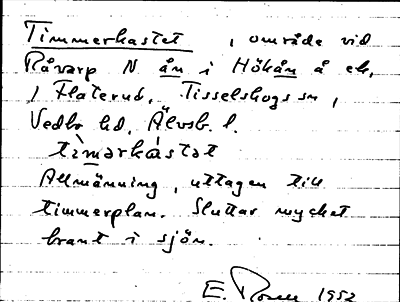 Timmerkastet, område vid
Råvarp N ån i Hökån å ek.
, Flaterud, Tisselskogs sn,
Vedbo hd, Älvsb. l.
timərkàstət
Allmänning, uttagen till
timmerplan. Sluttar mycket
brant i sjön.
E. Rosell 1952